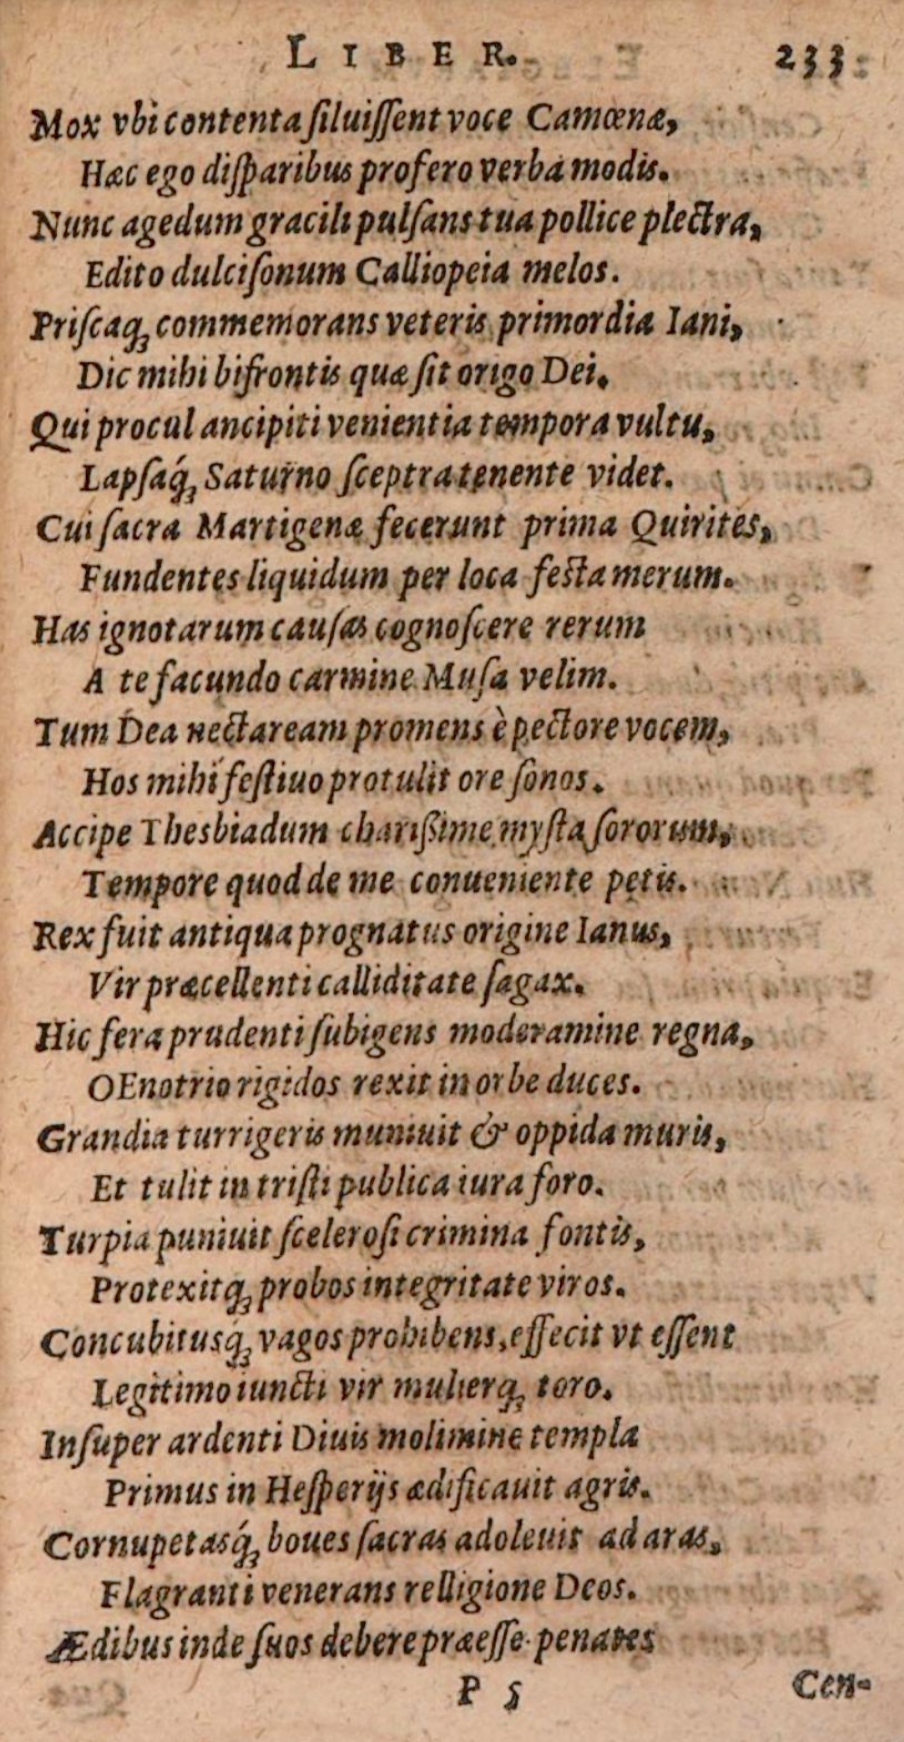 LIBER. 233
Mox vbi contenta ſiluiſſent voce Camœnæ,
Hæc ego diſparibus profero verba modis.
Nunc agedum gracili pulſans tua pollice plectra,
Edito dulciſonum Calliopeia melos.
Priſcaq́ꝫ commemorans veteris primordia Iani,
Dic mihi bifrontis quæ ſit origo Dei.
Qui procul ancipiti venientia tempora vultu,
Lapſaq́ꝫ Saturno ſceptra tenente videt.
Cui ſacra Martigenæ fecerunt prima Quirites,
Fundentes liquidum per loca feſta merum.
Has ignotarum cauſas cognoſcere rerum
A te facundo carmine Muſa velim.
Tum Dea nectaream promens è pectore vocem,
Hos mihi feſtiuo protulit ore ſonos.
Accipe Thesbiadum charißime myſta ſororum,
Tempore quod de me conueniente petis.
Rex fuit antiqua prognatus origine Ianus,
Vir præcellenti calliditate ſagax.
Hic fera prudenti ſubigens moderamine regna,
OEnotrio rigidos rexit in orbe duces.
Grandia turrigeris muniuit & oppida muris,
Et tulit in triſti publica iura foro.
Turpia puniuit ſceleroſi crimina ſontis,
Protexitqꝫ probos integritate viros.
Concubitusq́ꝫ vagos prohibens, effecit vt eſſent
Legitimo iuncti vir mulierqꝫ toro.
Inſuper ardenti Diuis molimine templa
Primus in Heſperijs ædificauit agris.
Cornupetasq́ꝫ boues ſacras adoleuit ad aras,
Flagranti venerans relligione Deos.
Ædibus inde ſuos debere præeſſe penates
P 5 Cen-